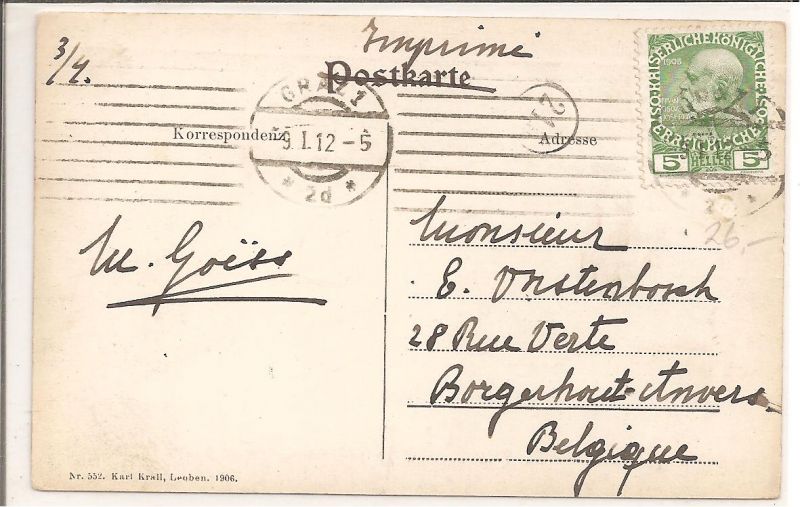 3/4.
Imprimé
Postkarte
GRAZ 1
9. I. 12 - 5
* 2d *
Korrespondenz
Adresse
KAISERLICHE KÖNIGLICHE ÖSTERREICHISCHE
1908
5 HELLER 5
26,-
M. Goëss
Monsieur
E.
28 Rue Verte
Borgerhout-Anvers
Belgique
Nr. 552. Karl Krall, Leoben. 1906.